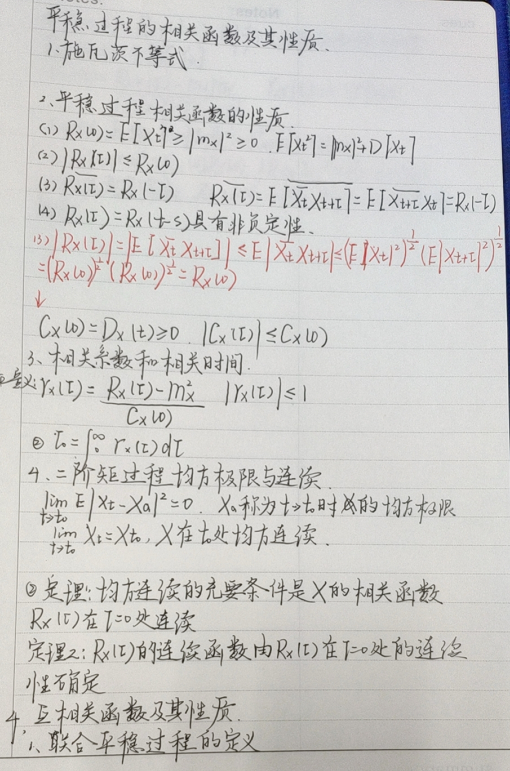 平稳过程的相关函数及其性质.
1.施瓦茨不等式.
2.平稳过程相关函数的性质.
(1) Rx(0)=E|Xt|²≥|mx|²≥0. E|Xt²|=|mx|²+D[Xt]
(2) |Rx(τ)|≤Rx(0)
(3) \overline{Rx(τ)}=Rx(-τ) \overline{Rx(τ)}=E[\overline{\overline{Xt}Xt+τ}]=E[\overline{Xt+τ}Xt]=Rx(-τ)
(4) Rx(τ)=Rx(t-s)具有非负定性.
(3) |Rx(τ)|=|E[\overline{Xt}Xt+τ]|≤E|\overline{Xt}Xt+τ|≤(E|Xt|²)^{1/2}(E|Xt+τ|²)^{1/2}
=(Rx(0))^{1/2}(Rx(0))^{1/2}=Rx(0)
↓
Cx(0)=Dx(t)≥0. |Cx(τ)|≤Cx(0)
3.相关系数和相关时间.
①定义:rx(τ)=\frac{Rx(τ)-m²x}{Cx(0)} |rx(τ)|≤1
② τ₀=∫₀^∞ rx(τ)dτ
4.二阶矩过程均方极限与连续.
lim_{t→t₀}E|Xt-Xa|²=0. Xa称为t→t₀时X的均方极限
lim_{t→t₀}Xt=Xt₀,X在t₀处均方连续.
② 定理1:均方连续的充要条件是X的相关函数
Rx(τ)在τ=0处连续
定理2:Rx(τ)的连续函数由Rx(τ)在τ=0处的连续
性确定
4.互相关函数及其性质.
1、联合平稳过程的定义